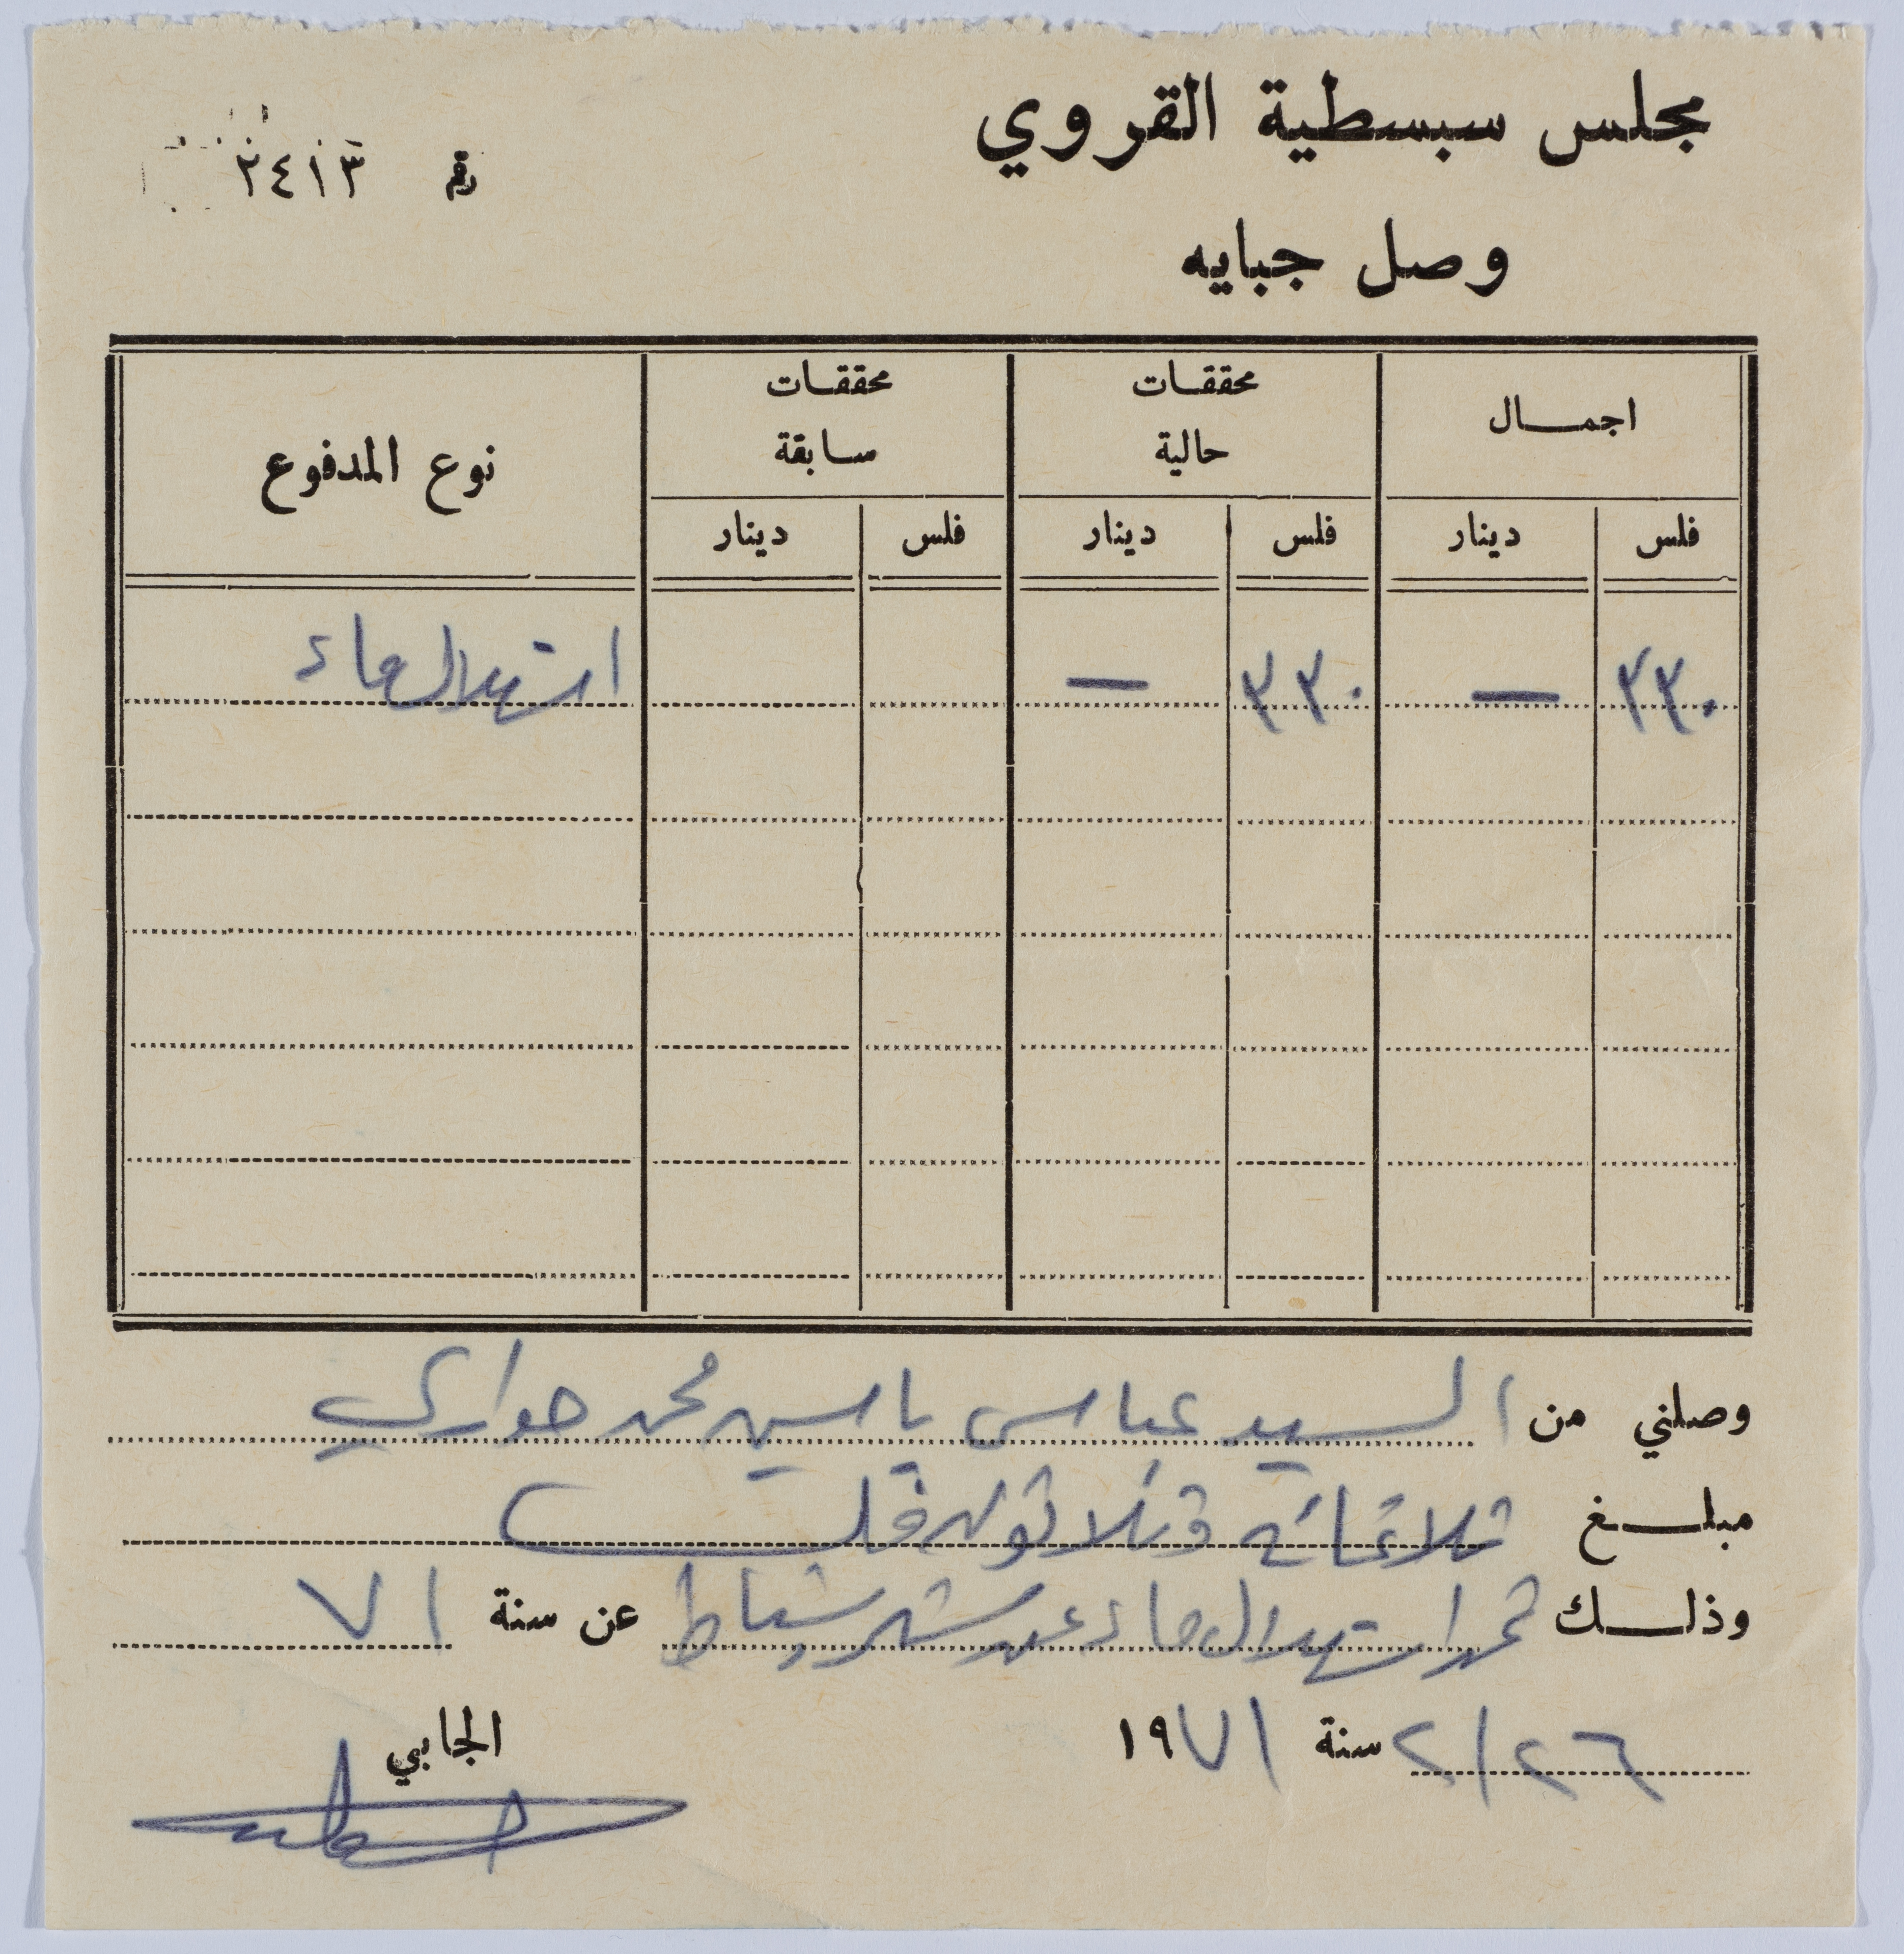 مجلس سبسطية القروي
رقم ٢٤١٣
وصل جبايه
اجمال محققات حالية محققات سابقة نوع المدفوع
فلس دينار فلس دينار فلس دينار
٣٣٠ — ٣٣٠ — استهلاك ماء
وصلني من السيد عباس ياسين محمد حواري
مبلغ ثلاثمائة وثلاثون فلس
وذلك ثمن استهلاك ماء عن شهر شباط عن سنة ٧١
٢/٢٦ سنة ١٩٧١
الجابي